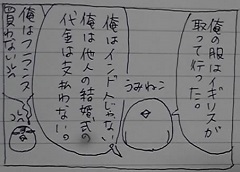 俺の服はイギリスが
取って行った。
うみねこ
俺はインド人じゃない。
俺は他人の結婚式の
代金は支払わない。
俺はフランス
買わないぞ